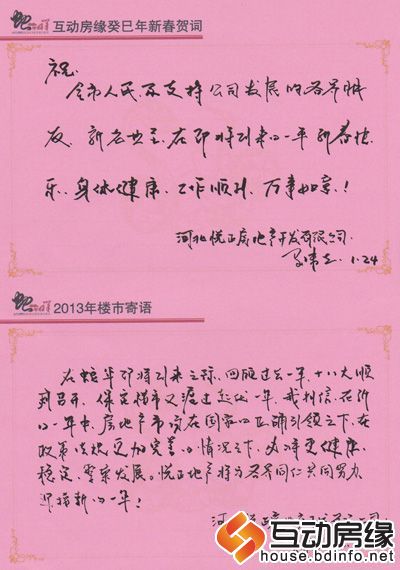 互动房缘癸巳年新春贺词
祝:
全市人民及支持公司发展的各界朋
友,新老业主,在即将到来的一年新春快
乐、身体健康、工作顺利、万事如意!
河北悦正房地产开发有限公司
1.24
2013年楼市寄语
在蛇年即将到来之际,回顾过去一年,十八大顺
利召开,保定楼市又渡过起伏一年,我相信,在新
的一年中,房地产市场在国家的正确引领之下,在
政策法规更加完善的情况之下,必将更健康、
稳定、繁荣发展。悦正地产将与各界同仁共同努力
迎接新的一年!
河
互动房缘
house.bdinfo.net